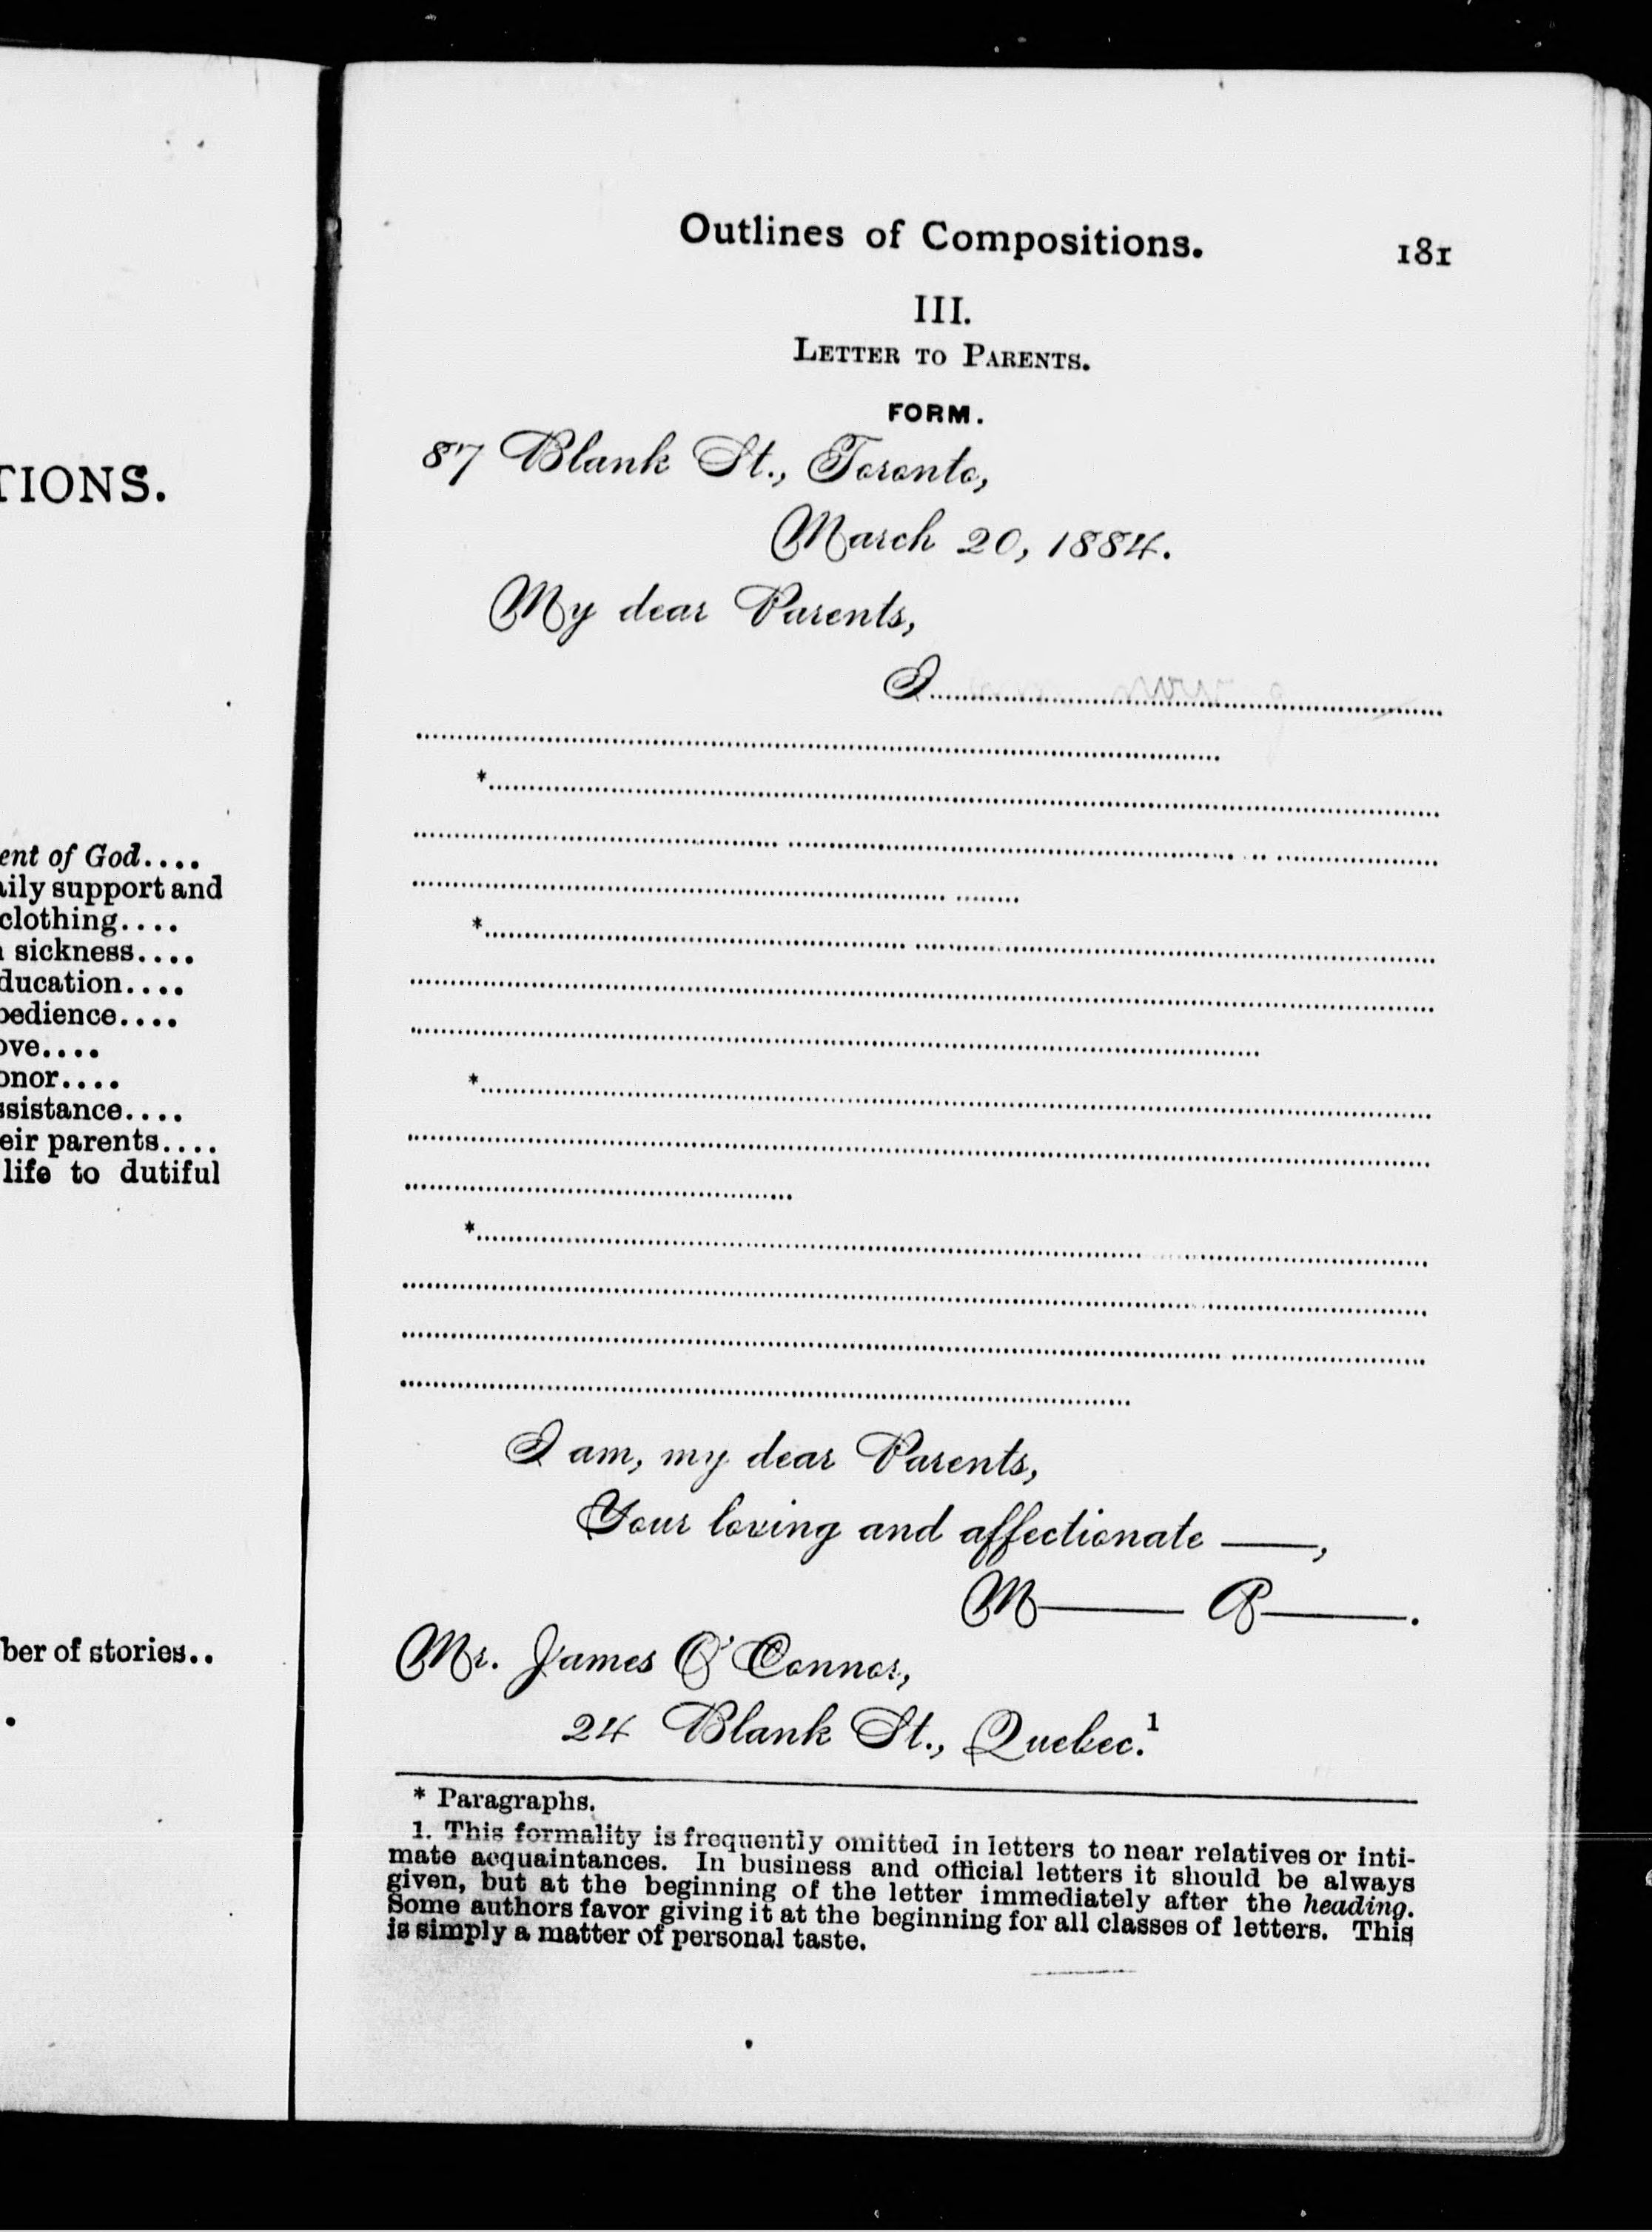 TIONS.
ent of God....
aily support and
clothing....
sickness....
ducation....
bedience....
ove....
onor....
ssistance....
eir parents....
life to dutiful
ber of stories..
Outlines of Compositions. 181
III.
LETTER TO PARENTS.
FORM.
87 Blank St., Toronto,
March 20, 1884.
My dear Parents,
I
*
*
*
*
I am, my dear Parents,
Your loving and affectionate ——,
M—— P——.
Mr. James O'Connor,
24 Blank St., Quebec.1
* Paragraphs.
1. This formality is frequently omitted in letters to near relatives or inti-
mate acquaintances. In business and official letters it should be always
given, but at the beginning of the letter immediately after the heading.
Some authors favor giving it at the beginning for all classes of letters. This
is simply a matter of personal taste.